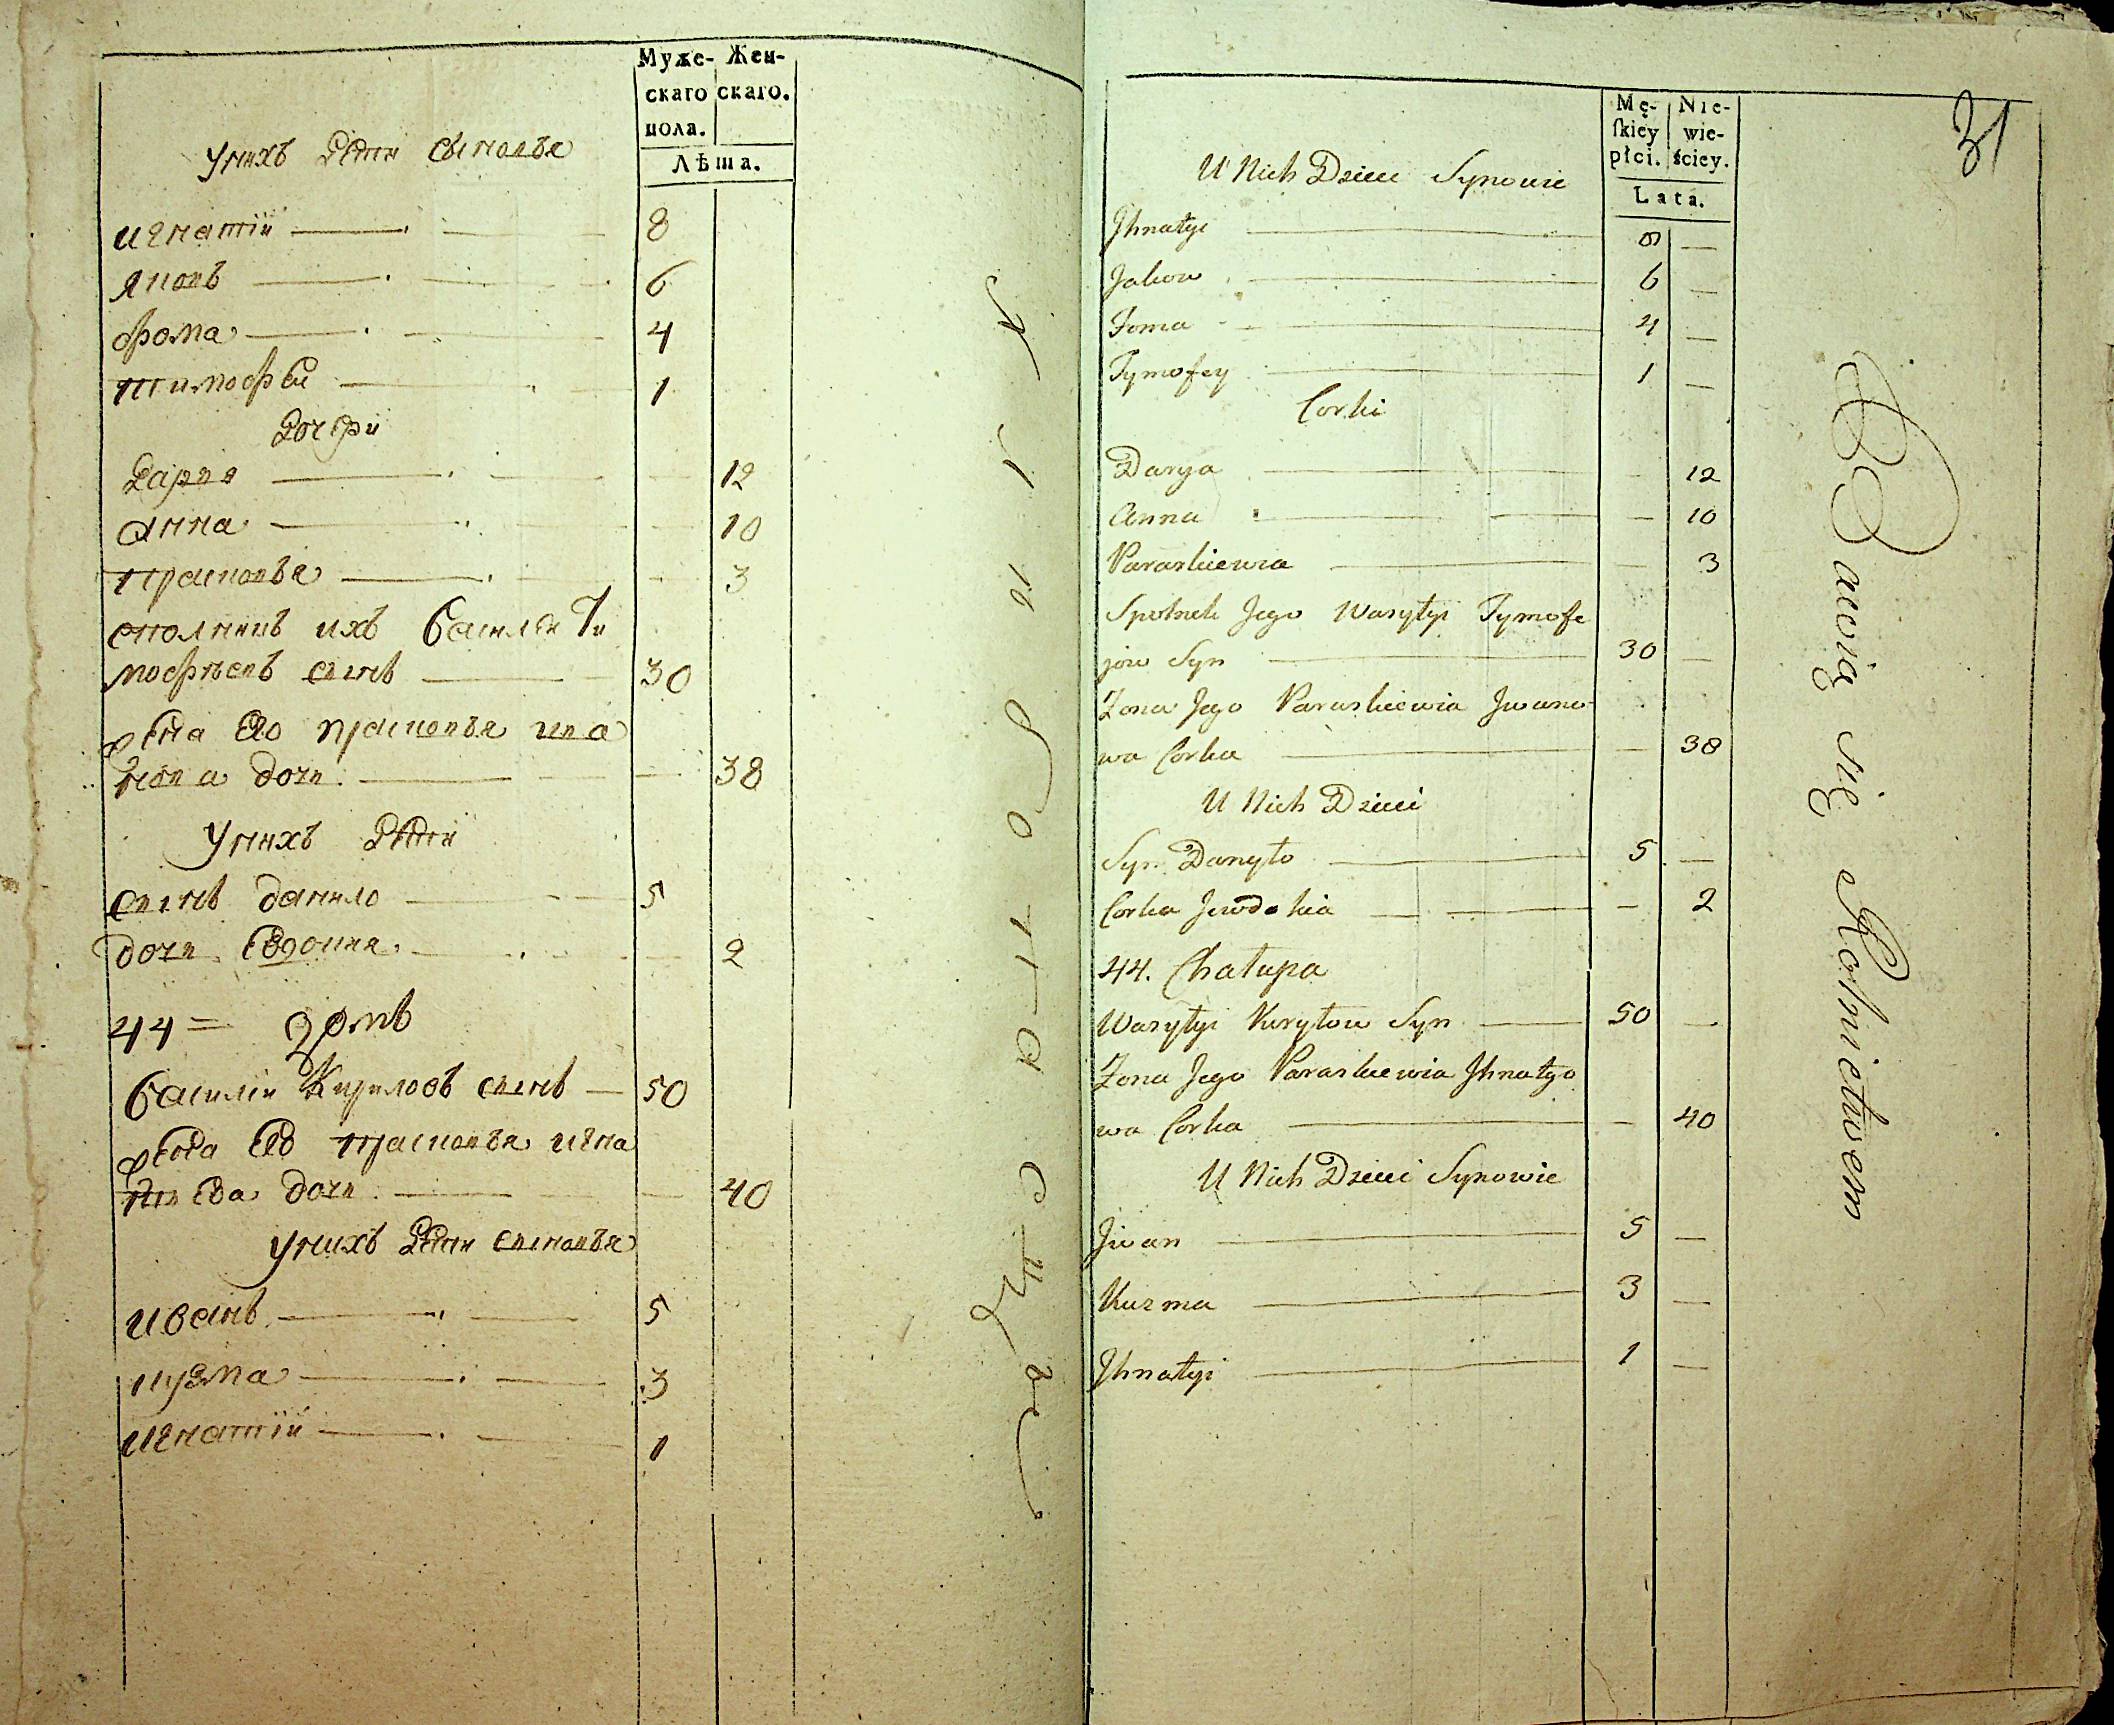 Муже- Жен-
скаго скаго.
пола.
Лѣта.
У нихъ дети сыновья
Игнатій 8
Яковъ 6
Фома 4
Тимофей 1
Дочери
Дарья 12
Анна 10
Прасковья 3
Сполникъ ихъ Василій Ти
мофѣевъ сынъ 30
жена его Прасковья Ива
нова дочь 38
У нихъ дети
Сынъ Данило 5
дочь Евдокия 2
44 = домъ
Василій Кириловъ сынъ 50
жена его Прасковья Игна
тьева дочь 40
У нихъ дети сыновья
Иванъ 5
Кузма 3
Игнатій 1
31
Mę- Nie-
ſkiey wie-
płci. ściey.
Lata.
U Nich Dzieci Synowie
Jhnatyi 8
Jakow 6
Foma 4
Tymofey 1
Corki
Darya 12
Anna 10
Paraskiewia 3
Spolnik Jego Wasyłyi Tymofe
jow Syn 30
Zona Jego Paraskiewia Jwano
wa Corka 38
U Nich Dzieci
Syn Danyło 5
Corka Jewdokia 2
44. Chałupa
Wasyłyi Kuryłow Syn 50
Zona Jego Paraskiewia Jhnatyo
wa Corka 40
U Nich Dzieci Synowie
Jwan 5
Kuzma 3
Jhnatyi 1
Bawią się Rolnictwem